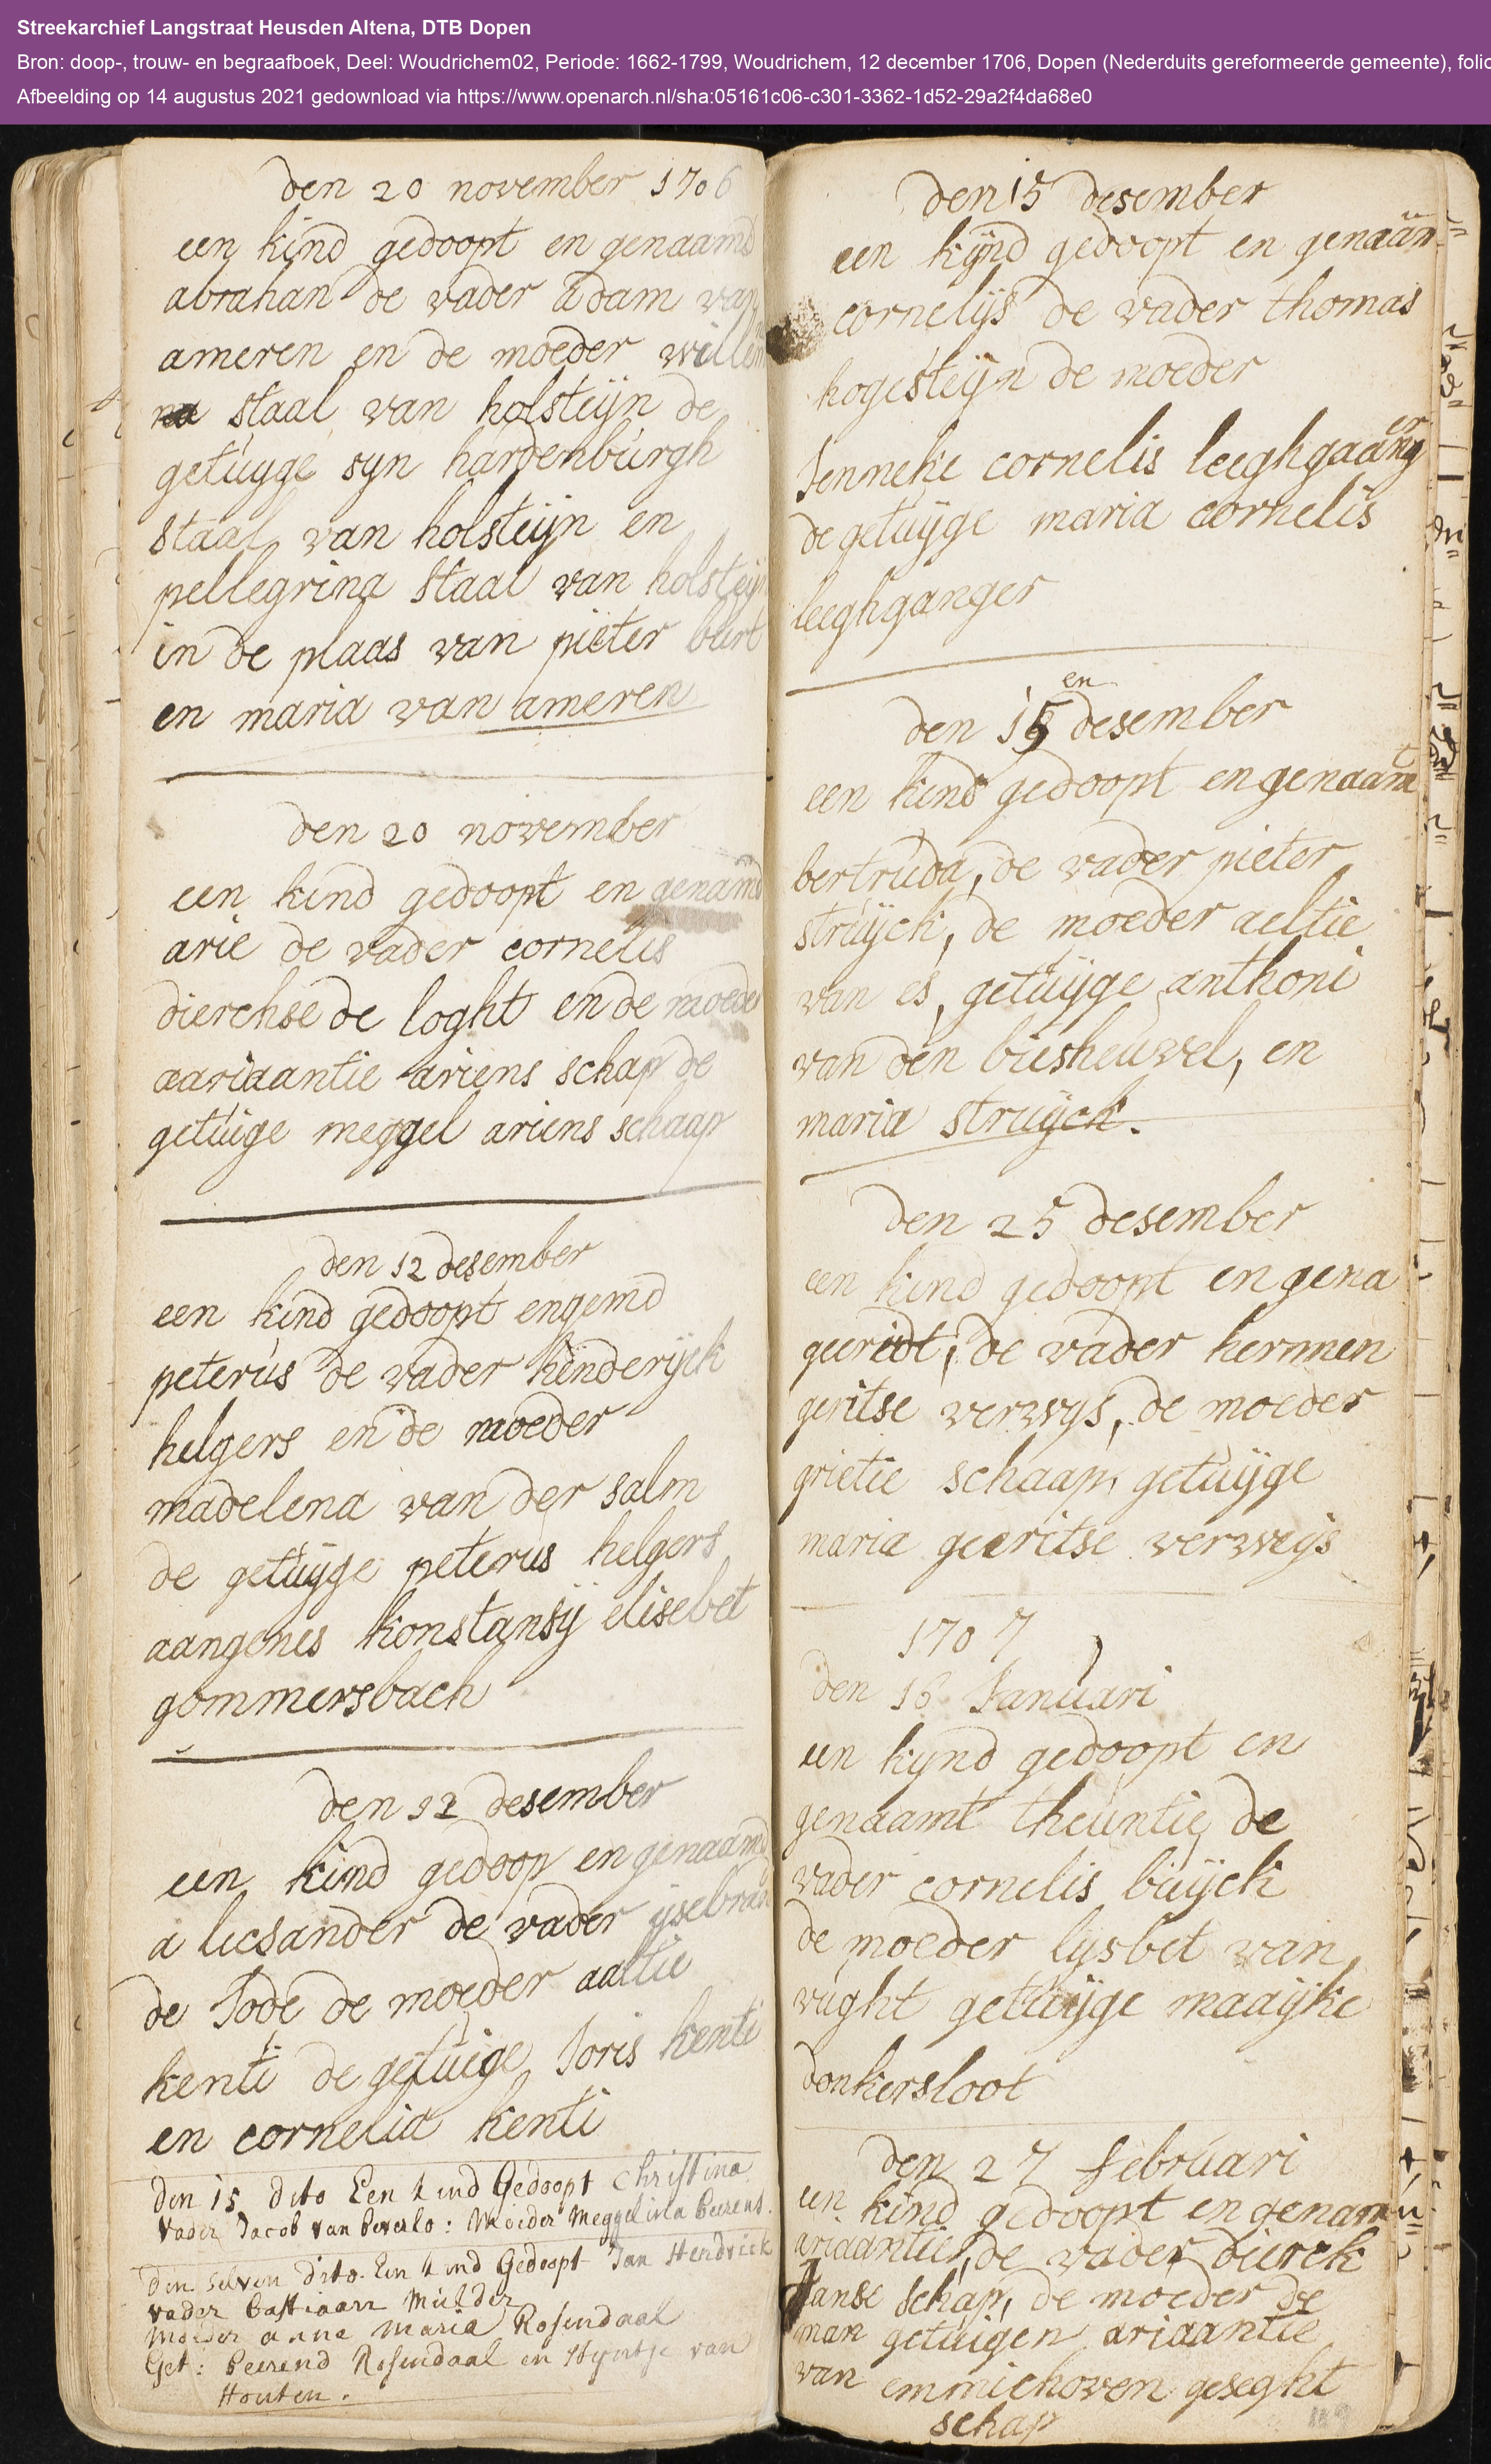 Streekarchief Langstraat Heusden Altena, DTB Dopen
Bron: doop-, trouw- en begraafboek, Deel: Woudrichem02, Periode: 1662-1799, Woudrichem, 12 december 1706, Dopen (Nederduits gereformeerde gemeente), folio
Afbeelding op 14 augustus 2021 gedownload via https://www.openarch.nl/sha:05161c06-c301-3362-1d52-29a2f4da68e0
den 20 november 1706
een kind gedoopt en genaamd
abrahan de vader adam van
ameren en de moeder willem
na staal van holsteijn de
getuyge syn hardenburgh
staal van holsteijn en
pellegrina staal van holsteijn
in de plaas van pieter burt
en maria van ameren
den 20 november
een kind gedoopt en genamd
arie de vader cornelis
dierckse de loght en de moeder
aariaantie ariens schap de
getuige meggel ariens schaap
den 12 desember
een kind gedoopt engemd
peterus de vader hinderijck
helgers en de moeder
madelena van der salm
de getuyge peterus helgers
aangenes konstansij elisebet
gommersbach
den 12 desember
een kind gedoop en genaamd
a licsander de vader ijsebran
de Jode de moeder aaltie
kenti de getuige Joris kenti
en cornelia kenti
den 15 dito Een kind Gedoopt Christina
vader Jacob van Beverlo: Moeder Meggelina Beerens.
Den selven dito. Een kind Gedoopt Jan Hendrick
vader Bastiaan Mulder
Moeder anna maria Rosendaal
Get: Beerend Rosendaal en Hyntje van
Houten.
den 15 desember
een kijnd gedoopt en genaam
cornelijs de vader thomas
hogesteijn de moeder
Jenneke cornelis leeghgaanger
de getuijge maria cornelis
leeghganger
den 15en desember
een kind gedoopt en genaamt
bertruda, de vader pieter
struijck, de moeder aeltie
van es, getuijge anthoni
van den biesheuvel, en
maria struijck.
den 25 desember
een kind gedoopt en gena
geeridt, de vader hermen
geritse verwys, de moeder
grietie schaap, getuijge
maria geeritse verweijs
1707
den 16 Januari
een kijnd gedoopt en
genaamt theuntie de
vader cornelis buijck
de moeder lijsbet van
vught getuijge maaijke
donkersloot
den 27 februari
een kind gedoopt en genam
ariaantie, de vader dierck
Janse schap, de moeder de
man getuigen ariaantie
van emmichoven geseght
schap